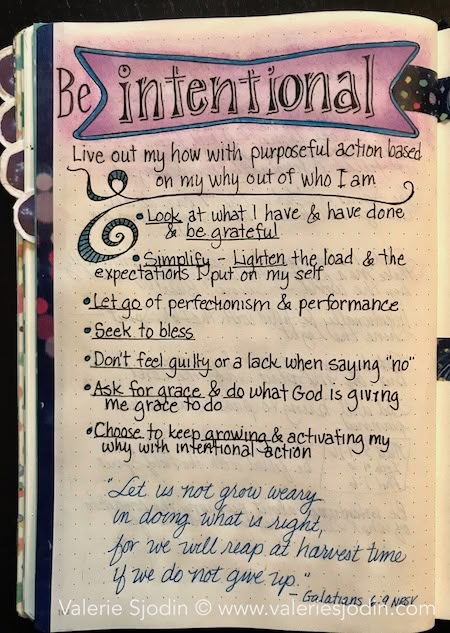 Be intentional
Live out my how with purposeful action based
on my why out of who I am
• Look at what I have & have done
& be grateful
• Simplify - Lighten the load & the
expectations I put on my self
• Let go of perfectionism & performance
• Seek to bless
• Don't feel guilty or a lack when saying "no"
• Ask for grace & do what God is giving
me grace to do
• Choose to keep growing & activating my
why with intentional action
"Let us not grow weary
in doing what is right,
for we will reap at harvest time
if we do not give up."
- Galatians 6:9 NRSV
Valerie Sjodin © www.valeriesjodin.com